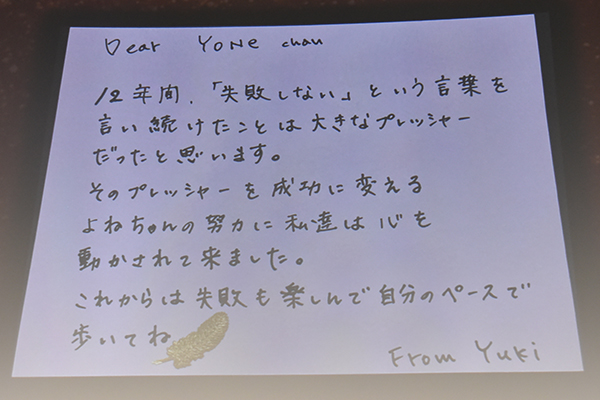 Dear YONE chan
12年間、「失敗しない」という言葉を
言い続けたことは大きなプレッシャー
だったと思います。
そのプレッシャーを成功に変える
よねちゃんの努力に私達は心を
動かされて来ました。
これからは失敗も楽しんで自分のペースで
歩いてね
From Yuki